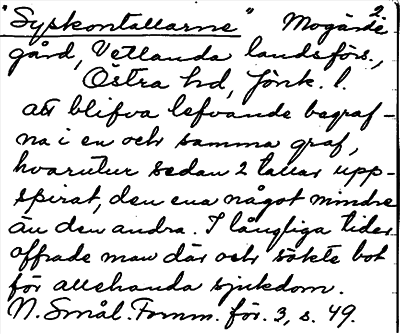 2.
"Syskontallarne" Mogärde
gård, Vetlanda landsförs.,
Östra hd, Jönk. l.
att blifva lefvande begraf-
na i en och samma graf,
hvarutur sedan 2 tallar upp-
spirat, den ena något mindre
än den andra. I långliga tider
offrade man där och sökte bot
för allehanda sjukdom.
N. Smål. Fornm. för. 3, s. 49.